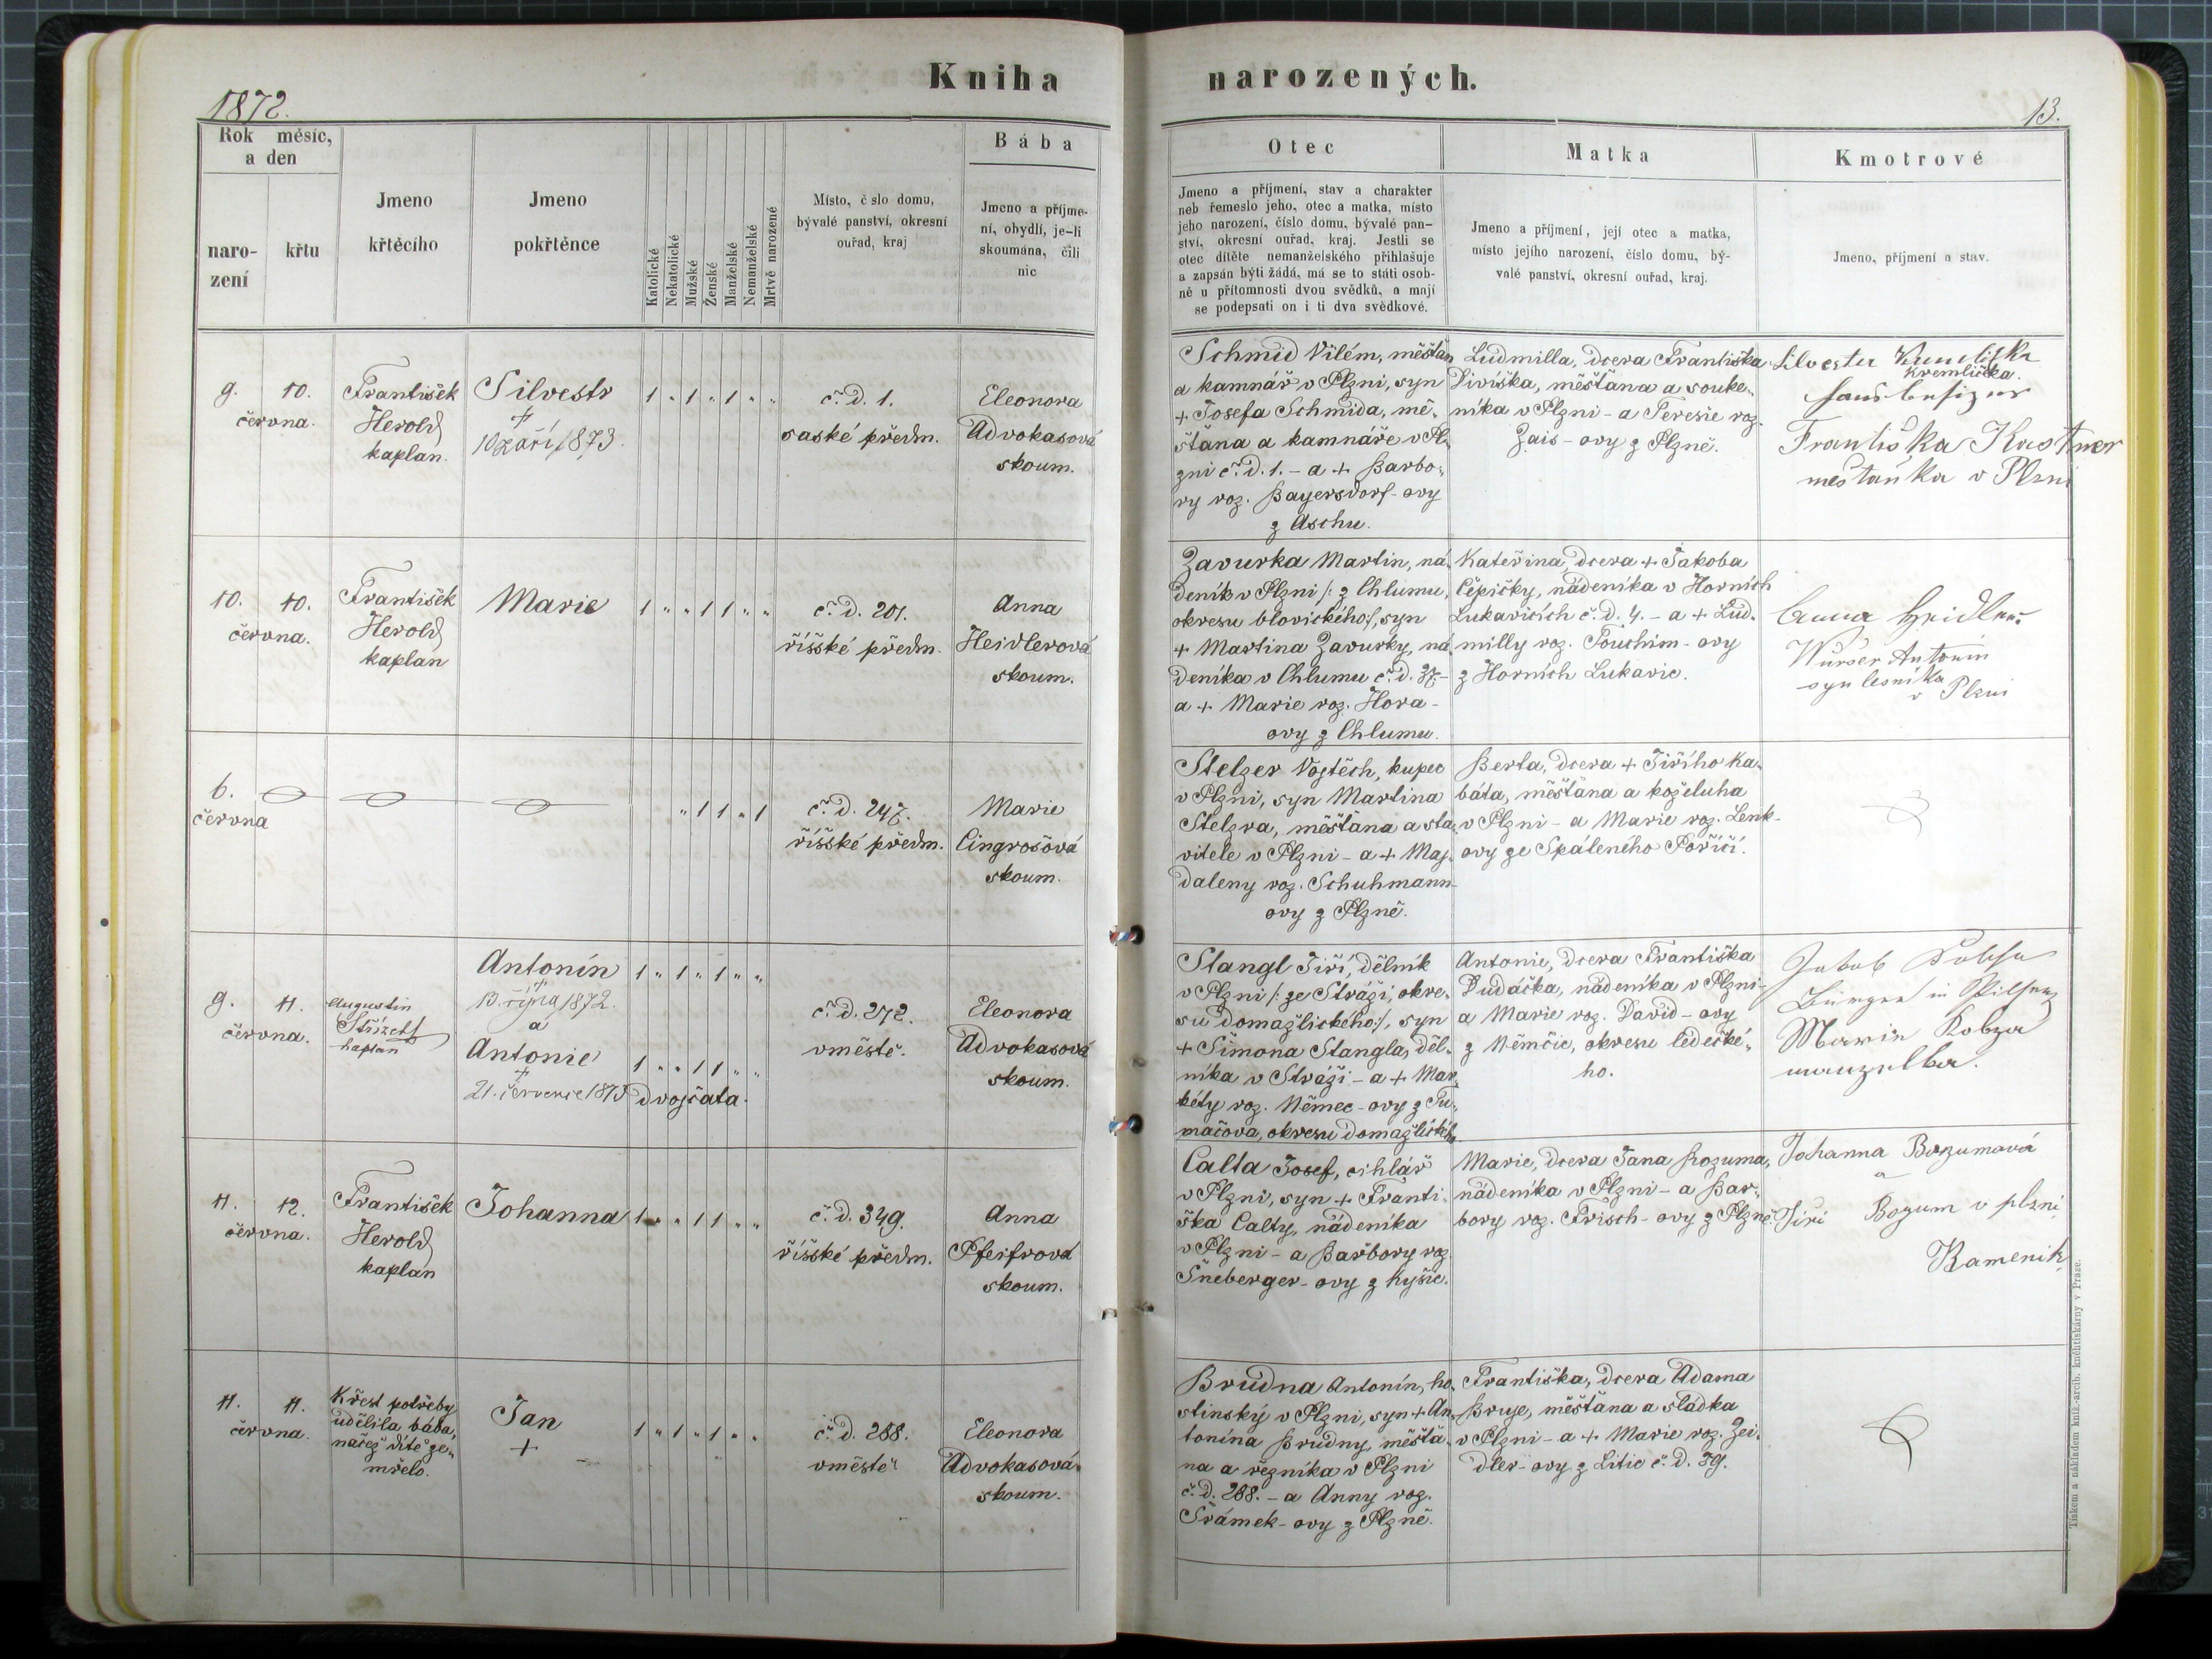 Kniha narozených.
1872.
13.
Rok měsíc,
a den
naro-
zení
křtu
Jmeno
křtěcího
Jmeno
pokřtěnce
Katolické
Nekatolické
Mužské
Ženské
Manželské
Nemanželské
Mrtvě narozené
Místo, číslo domu,
bývalé panství, okresní
ouřad, kraj
Bába
Jmeno a příjme-
ní, obydlí, je-li
skoumána, čili
nic
Otec
Jmeno a příjmení, stav a charakter
neb řemeslo jeho, otec a matka, místo
jeho narození, číslo domu, bývalé pan-
ství, okresní ouřad, kraj. Jestli se
otec dítěte nemanželského přihlašuje
a zapsán býti žádá, má se to státi osob-
ně u přítomnosti dvou svědků, a mají
se podepsati on i ti dva svědkové.
Matka
Jmeno a příjmení, její otec a matka,
místo jejího narození, číslo domu, bý-
valé panství, okresní ouřad, kraj.
Kmotrové
Jmeno, příjmení a stav.
9. 10.
června.
František
Herold
kaplan.
Silvestr
†
10 září 1873.
1 " 1 " 1 " "
č. d. 1.
saské předm.
Eleonora
Advokasová
skoum.
Schmid Vilém, měšťan
a kamnář v Plzni, syn
+ Josefa Schmida, mě-
šťana a kamnáře v Pl-
zni č. d. 1. - a + Barbo-
ry roz. Bayersdorf-ovy
z Aschu.
Ludmilla, dcera Františka
Diviška, měšťana a souke-
níka v Plzni - a Teresie roz.
Zais-ovy z Plzně.
Silvester
Kremlička.
Hausbesizer
Františka Kastner
měšťanka v Plzni
10. 10.
června.
František
Herold
kaplan
Marie
1 " " 1 1 " "
č. d. 201.
říšské předm.
Anna
Heidlerová
skoum.
Zavurka Martin, ná-
deník v Plzni /: z Chlumu,
okresu blovického :/, syn
+ Martina Zavurky, ná-
deníka v Chlumu č. d. 37 -
a + Marie roz. Hora-
ovy z Chlumu.
Kateřina, dcera + Jakoba
Čepičky, nádeníka v Horních
Lukavicích č. d. 4. - a + Lud-
milly roz. Touchim-ovy
z Horních Lukavic.
Anna Heidler
Antonín
syn lesníka
v Plzni
6.
června
" 1 1 " 1
č. d. 247.
říšské předm.
Marie
Cingrošová
skoum.
Stelzer Vojtěch, kupec
v Plzni, syn Martina
Stelzra, měšťana a sta-
vitele v Plzni - a + Maj-
daleny roz. Schuhmann-
ovy z Plzně.
Berta, dcera + Jiřího Ka-
báta, měšťana a koželuha
v Plzni - a Marie roz. Lenk-
ovy ze Spáleného Poříčí.
9. 11.
června.
Augustin
Střízek
kaplan
Antonín
†
13. října 1872.
a
Antonie
†
21. července 1873
dvojčata.
1 " 1 " 1 " "
1 " " 1 1 " "
č. d. 272.
v městě.
Eleonora
Advokasová
skoum.
Stangl Jiří, dělník
v Plzni /: ze Stráži, okre-
su domažlického :/, syn
+ Šimona Stangla, děl-
níka v Stráži - a + Mar-
kéty roz. Němec-ovy z Tu-
mačova, okresu domažlického
Antonie, dcera Františka
Dudáčka, nádeníka v Plzni -
a Marie roz. David-ovy
z Němčic, okresu ledečké-
ho.
Jakob Kobza
Bürger in Pilsen
Marie Kobza
manzelka.
11. 12.
června.
František
Herold
kaplan
Johanna
1 " " 1 1 " "
č. d. 349.
říšské předm.
Anna
Pfeifrová
skoum.
Calta Josef, cihlář
v Plzni, syn + Franti-
ška Calty, nádeníka
v Plzni - a Barbory roz
Šneberger-ovy z Kyšic.
Marie, dcera Jana Rozuma,
nádeníka v Plzni - a Bar-
bory roz. Frisch-ovy z Plzně.
Johanna Rozumová
a
Jiri Rozum v plzni
Kamenik
11. 11.
června.
Křest potřeby
udělila bába,
načež dítě ze-
mřelo.
Jan
+
1 " 1 " 1 " "
č. d. 288.
v městě
Eleonora
Advokasová
skoum.
Brudna Antonín, ho-
stinský v Plzni, syn + An-
tonína Brudny, měšťa-
na a řezníka v Plzni
č. d. 288. - a Anny roz.
Šrámek-ovy z Plzně.
Františka, dcera Adama
Bruje, měšťana a sládka
v Plzni - a + Marie roz. Zei-
dler-ovy z Litic č. d. 39.
Tiskem a nákladem kníž.-arcib. knihtiskárny v Praze.